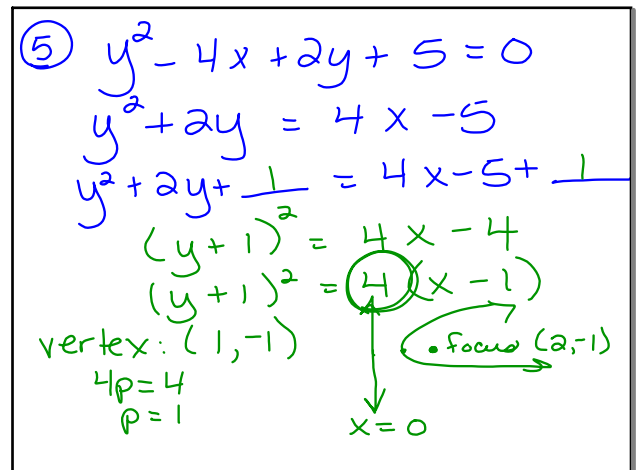 5 y² - 4x + 2y + 5 = 0
y² + 2y = 4x - 5
y² + 2y + 1 = 4x - 5 + 1
(y + 1)² = 4x - 4
(y + 1)² = 4(x - 1)
vertex: (1, -1)
focus (2, -1)
4p = 4
p = 1
x = 0